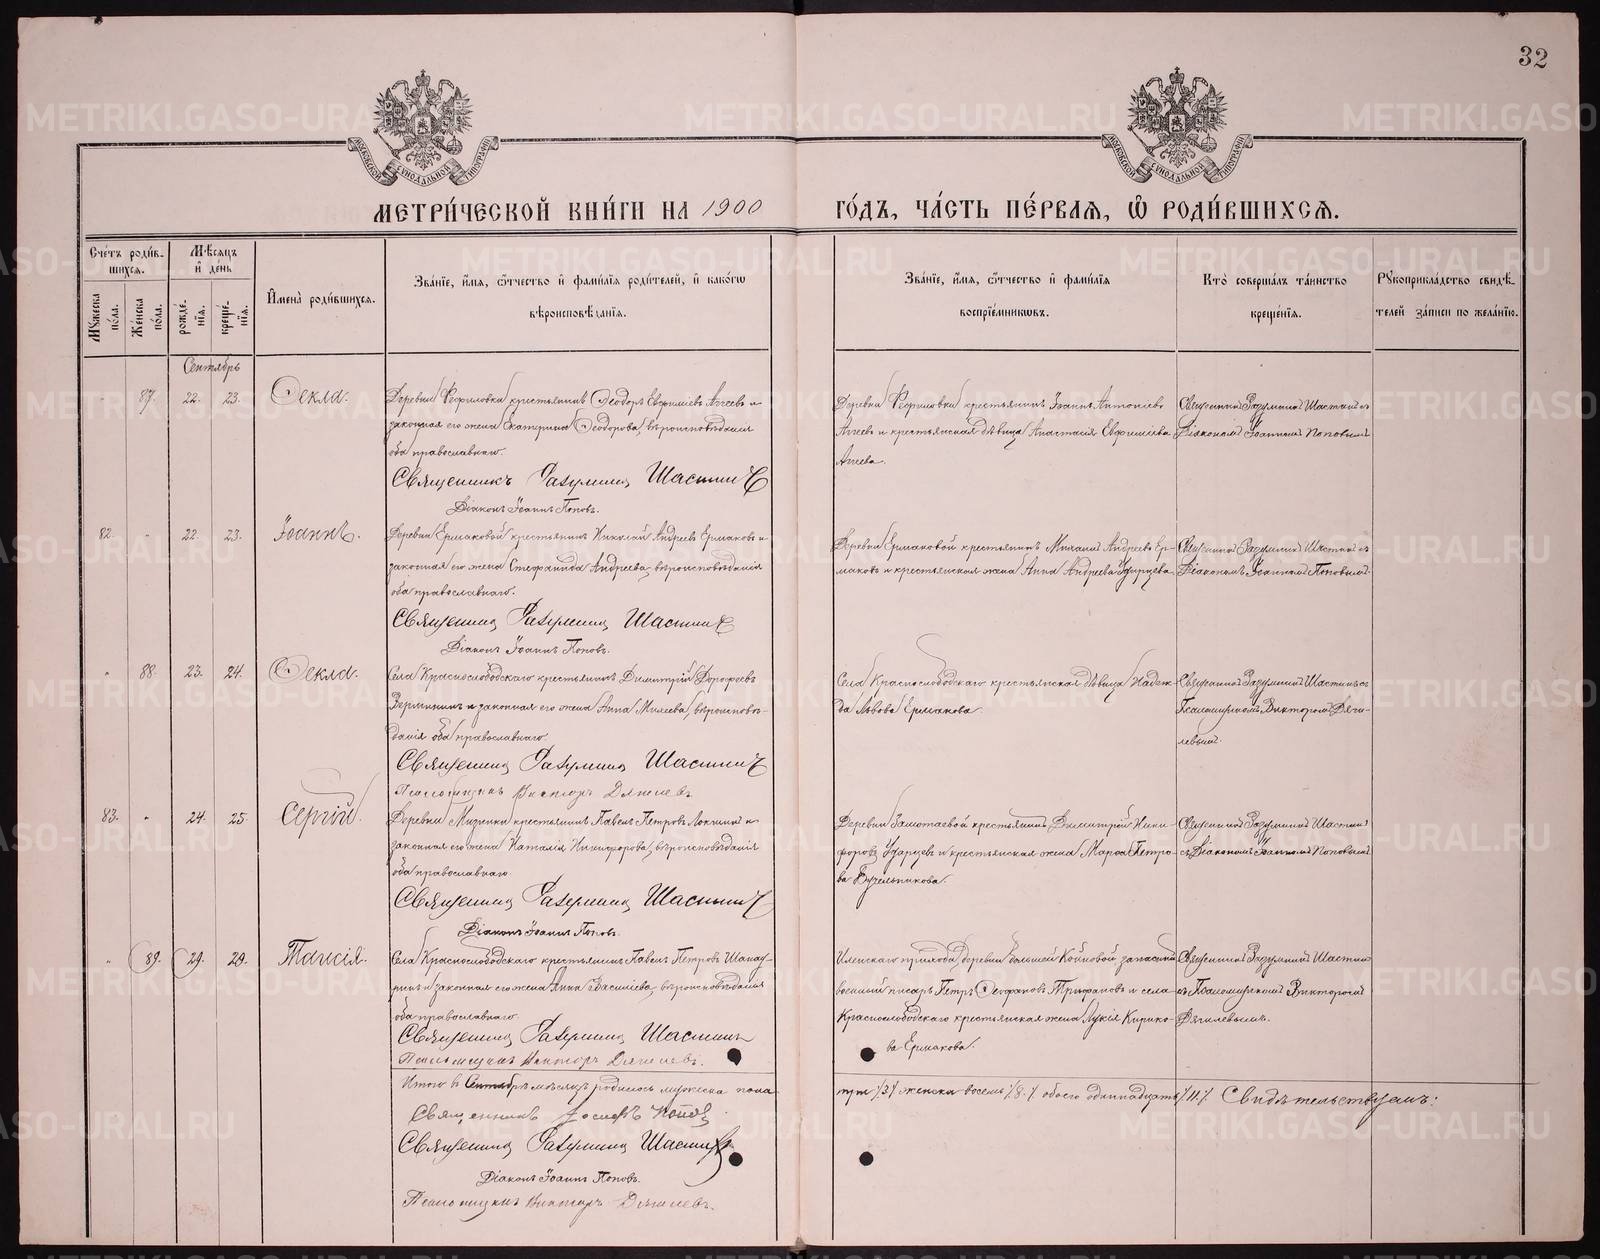 32
МЕТРИ́ЧЕСКОЙ КНИ́ГИ НА 1900 ГО́ДЪ, ЧА́СТЬ ПЕ́РВАѦ, Ѽ РОДИ́ВШИХСѦ.
Сче́тъ роди́в-
шихсѧ.
Мꙋжеска по́ла.
Же́нска по́ла.
Мѣ́сѧцъ и҆ де́нь
рожде́-
нїѧ.
креще́-
нїѧ.
И҆мена̀ роди́вшихсѧ.
Зва́нїе, и҆́мѧ, ѻ҆́тчество и҆ фами́лїѧ роди́телей, и҆ како́гѡ
вѣроисповѣ́данїѧ.
Зва́нїе, и҆́мѧ, ѻ҆́тчество и҆ фами́лїѧ
воспрїе́мникѡвъ.
Кто̀ соверша́лъ та́инство
креще́нїѧ.
Рꙋкоприкла́дство свидѣ́-
телей за́писи по жела́нїю.
Сентябрь
87. 22. 23. Ѳекла.
Деревни крестьянинъ Ѳеодоръ Евфиміевъ Агеевъ и
законная его жена Екатерина Ѳеодорова, вѣроисповѣданія
оба православнаго.
Священникъ Разумникъ Шастинъ
Діаконъ Іоаннъ Поповъ.
Деревни крестьянинъ Іоаннъ Антоніевъ
Агеевъ и крестьянская дѣвица Анастасія Евфиміева
Агеева.
Священникъ Разумникъ Шастинъ съ
Діакономъ Іоанномъ Поповымъ
82. 22. 23. Іоаннъ.
Деревни Ермаковой крестьянинъ Николай Андреевъ Ермаковъ и
законная его жена Стефанида Андреева, вѣроисповѣданія
оба православнаго.
Священникъ Разумникъ Шастинъ
Діаконъ Іоаннъ Поповъ.
Деревни Ермаковой крестьянинъ Михаилъ Андреевъ Ер-
маковъ и крестьянская жена Анна Андреева Ударцева
Священникъ Разумникъ Шастинъ съ
Діакономъ Іоанномъ Поповымъ.
88. 23. 24. Ѳекла.
Села Краснослободскаго крестьянинъ Димитрій Дорофеевъ
и законная его жена Анна вѣроисповѣ-
данія оба православнаго.
Священникъ Разумникъ Шастинъ
Псаломщикъ Викторъ Дягилевъ
Села Краснослободскаго крестьянская дѣвица Надеж-
да Львова Ермакова
Священникъ Разумникъ Шастинъ съ
Псаломщикомъ Викторомъ Дяги-
левымъ.
83. 24. 25. Сергій.
Деревни крестьянинъ Павелъ Петровъ и
законная его жена Наталія Никифорова, вѣроисповѣданія
оба православнаго.
Священникъ Разумникъ Шастинъ
Діаконъ Іоаннъ Поповъ.
Деревни крестьянинъ Димитрій Ники-
форовъ Ударцевъ и крестьянская жена Марѳа Петро-
ва
Священникъ Разумникъ Шастинъ
съ Діакономъ Іоанномъ Поповымъ
89. 29. 29. Таисія.
Села Краснослободскаго крестьянинъ Павелъ Петровъ
и законная его жена Анна Васильева, вѣроисповѣданія
оба православнаго.
Священникъ Разумникъ Шастинъ
Псаломщикъ Викторъ Дягилевъ.
прихода деревни Большей запасный
военный писарь Петръ Трифановъ и села
Краснослободскаго крестьянская жена Лукія Кирико-
ва Ермакова.
Священникъ Разумникъ Шастинъ
съ Псаломщикомъ Викторомъ
Дягилевымъ.
Итого в Сентябрѣ мѣсяцѣ родилось мужеска пола три /3/ женска восемь /8./ обоего одиннадцать /11./ Свидѣтельствуемъ:
Священникъ
Священникъ Разумникъ Шастинъ
Діаконъ Іоаннъ Поповъ.
Псаломщикъ Викторъ Дягилевъ.